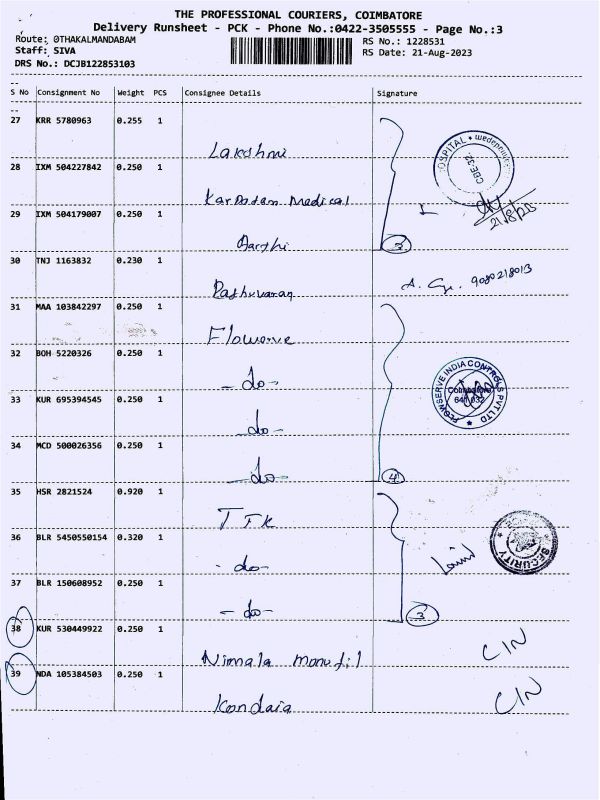 THE PROFESSIONAL COURIERS, COIMBATORE
Delivery Runsheet - PCK - Phone No.:0422-3505555 - Page No.:3
Route: OTHAKALMANDABAM
RS No.: 1228531
Staff: SIVA
RS Date: 21-Aug-2023
DRS No.: DCJB122853103
S No Consignment No Weight PCS Consignee Details Signature
27 KRR 5780963 0.255 1
Lakshmi
28 IXM 504227842 0.250 1
Karpagam Medical
29 IXM 504179007 0.250 1
HOSPITAL
CBE-32
21/8/23
30 TNJ 1163832 0.230 1
A. 9080218013
31 MAA 103842297 0.250 1
Flowserve
32 BOH 5220326 0.250 1
- do -
33 KUR 695394545 0.250 1
- do -
FLOWSERVE INDIA CONTROLS PVT LTD
Coimbatore
641 032
34 MCD 500026356 0.250 1
- do -
4
35 HSR 2821524 0.920 1
TTK
36 BLR 5450550154 0.320 1
- do -
SECURITY
37 BLR 150608952 0.250 1
- do -
3
38 KUR 530449922 0.250 1
Nirmala
CIN
39 NDA 105384503 0.250 1
Kondaia
CIN